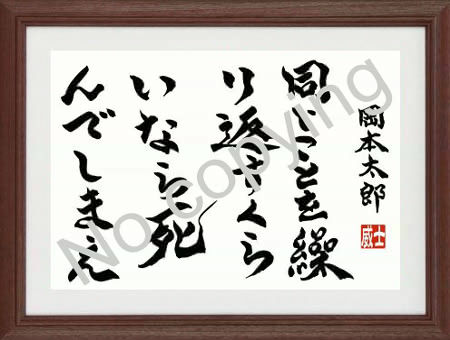 岡本太郎
威士
同じことを繰
り返すくら
いなら死
んでしまえ
No copying